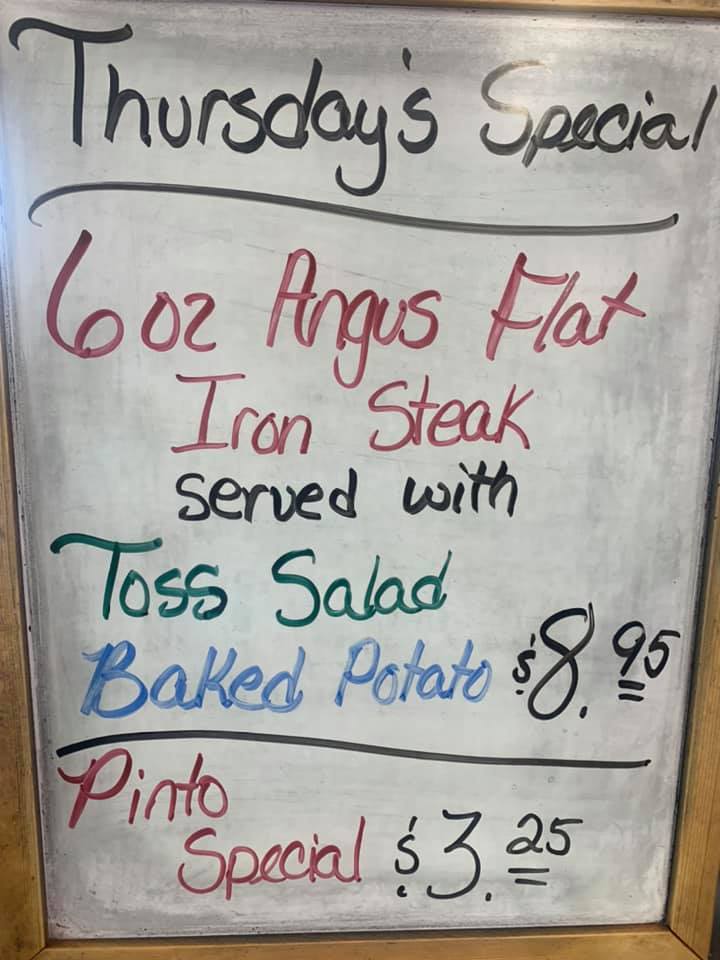 Thursday's Special
6 oz Angus Flat
Iron Steak
served with
Toss Salad
Baked Potato $8.95
Pinto
Special $3.25